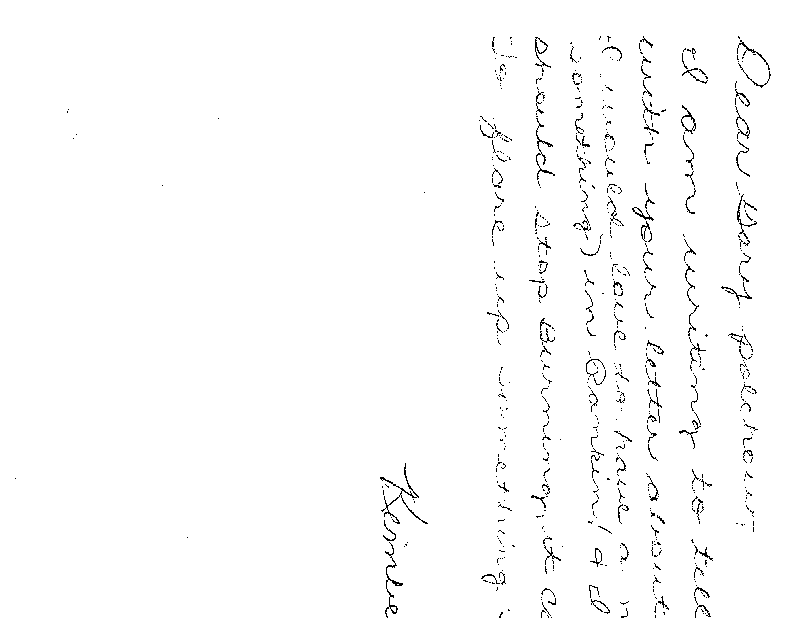 Dear Gary
I am writing to tell
with your letter about
I would love to have a
something) in Rankin! & I
should stop Burning, it
To flare up something
Kimbe